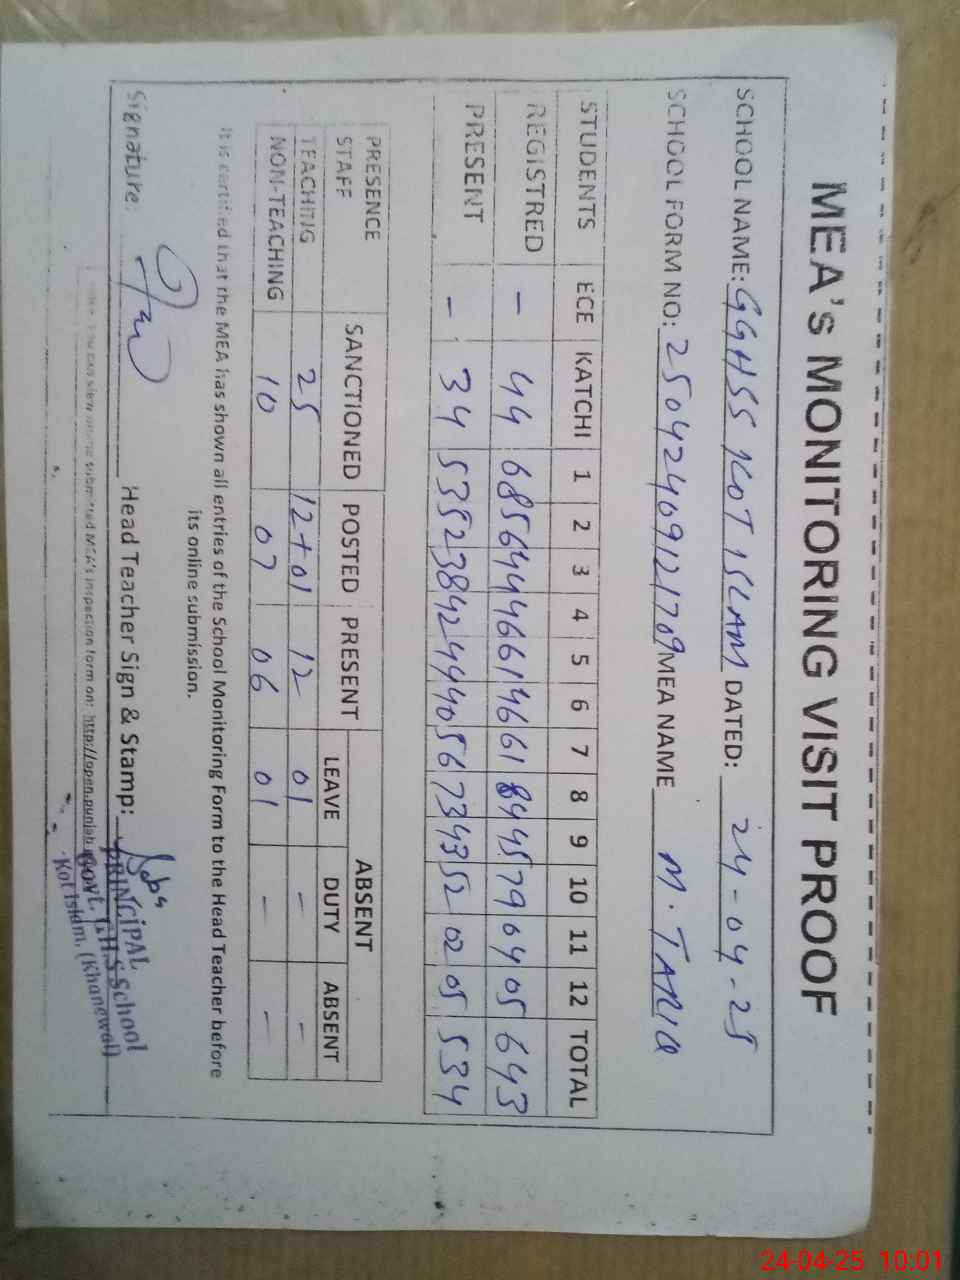 MEA's MONITORING VISIT PROOF
SCHOOL NAME: GGHSS KOT ISLAM DATED: 24-04-25
SCHOOL FORM NO: 25042409121709 MEA NAME M. TARIQ
STUDENTS ECE KATCHI 1 2 3 4 5 6 7 8 9 10 11 12 TOTAL
REGISTRED – 44 68 56 44 46 61 46 61 84 45 79 04 05 643
PRESENT – 34 53 52 38 42 44 40 56 73 43 52 02 05 534
PRESENCE STAFF SANCTIONED POSTED PRESENT ABSENT
LEAVE DUTY ABSENT
TEACHING 25 12+01 12 01 – –
NON-TEACHING 10 07 06 01 – –
It is certified that the MEA has shown all entries of the School Monitoring Form to the Head Teacher before
its online submission.
Signature: Head Teacher Sign & Stamp:
PRINCIPAL
Govt. G.H.S School
Kot Islam, (Khanewal)
you can view online submitted MEA's inspection form on: http://open.punjab
24-04-25 10:01